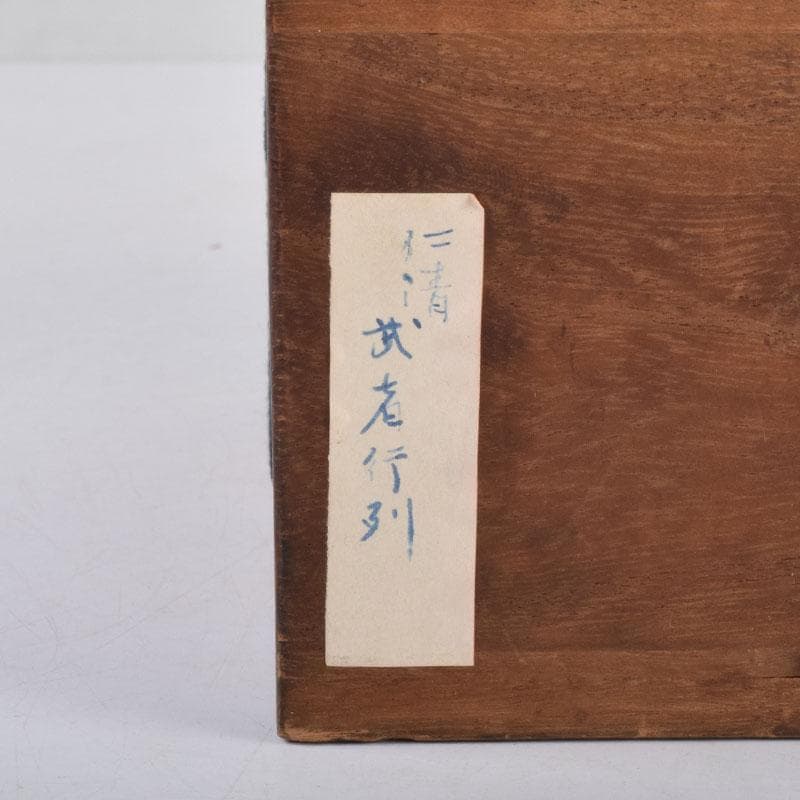 仁清
武者行列